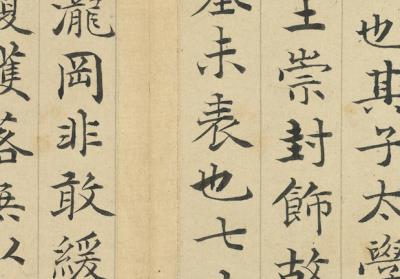 也其子太學
王崇封飾
未表也七
瀧岡非敢緩
濩落無以